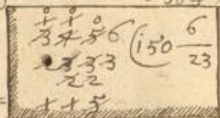 1 1 0
3 4 5 6 (150 6/23
2 3 3 3
2 2
1 1 5